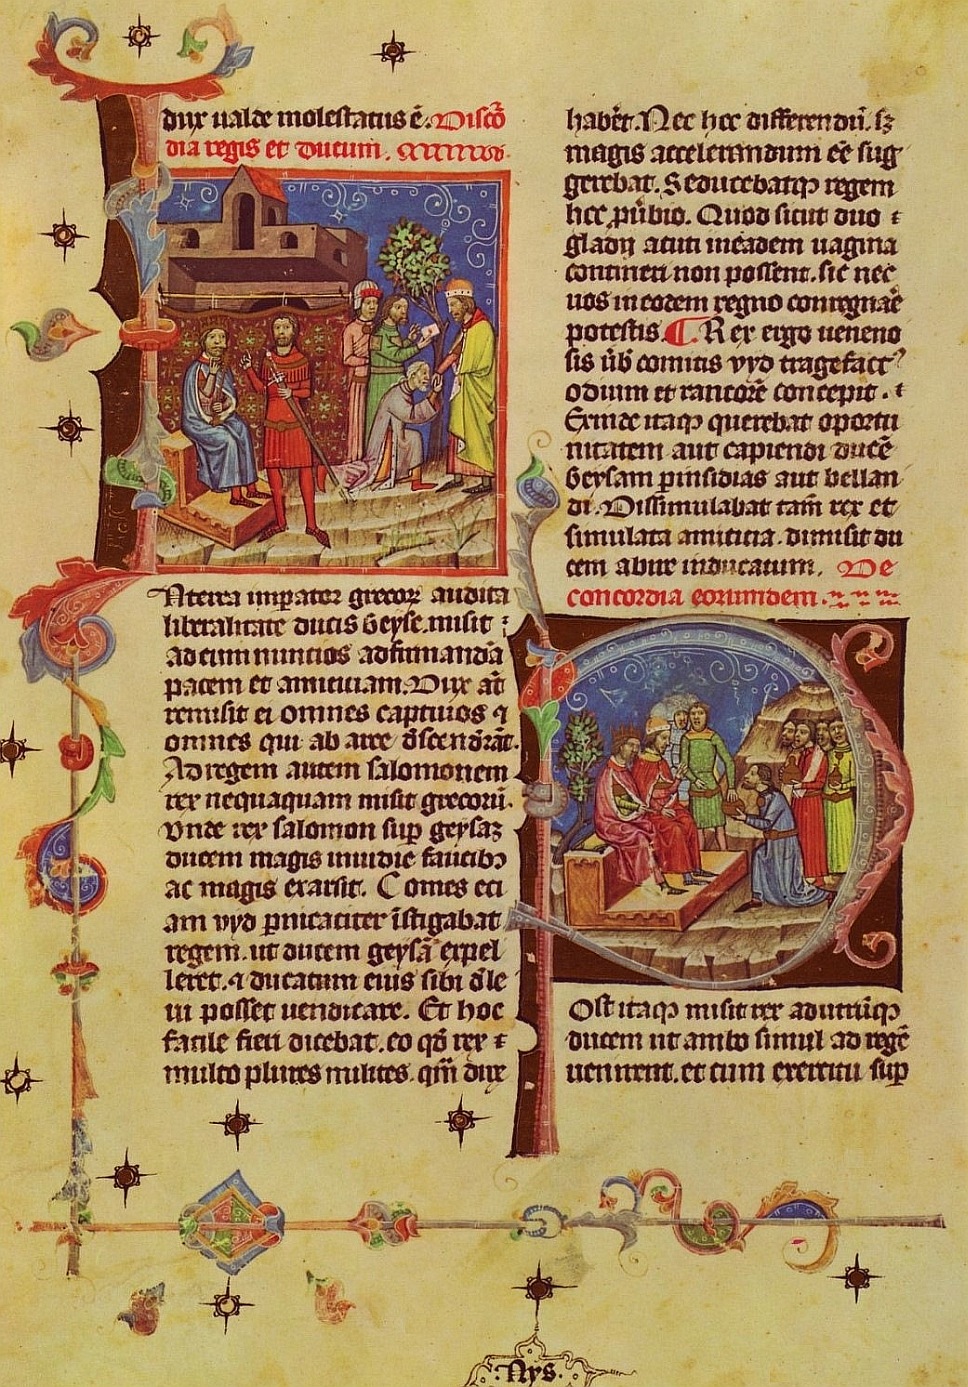 dux ualde molestatus ē. Discor
dia regis et ducum.
Nterea imperator grecorꝝ audita
liberalitate ducis Geyse. misit ⁊
ad eum nuncios ad firmandā
pacem et amiciciam. Dux aūt
remisit ei omnes captiuos ⁊
omnes qui ab arce descenderāt.
Ad regem autem salomonem
rex nequaquam misit grecorū.
Vnde rex salomon sup geysaȝ
ducem magis inuidie faucibꝫ
ac magis exarsit. Comes eci
am vyd pnicaciter īstigabat
regem. ut ducem geysā expel
leret. ⁊ ducatum eius sibi
posset uendicare. Et hoc
facile fieri dicebat. eo qđ rex ⁊
multo plures milites. qm̄ dux
habēt. Nec hec differendū. sȝ
magis accelerandum eē sug
gerebat. Seducebatqꝫ regem
hec puerbio. Quod sicut duo ⁊
gladij acuti in eadem uagina
contineri non possent. sic nec
uos in eodem regno conregnaē
potestis. Rex ergo ueneno
sis ūb comitis vyd tragefact
odium et rancorē concepit. ⁊
Exinde itaqꝫ querebat oportu
nitatem aut capiendi ducē
Geysam pinsidias aut bellan
di. Dissimulabat tam̄ rex et
simulata amicicia. dimisit du
cem abire in ducatum. De
concordia eorumdem.
Ost itaqꝫ misit rex ad utrūqꝫ
ducem ut ambo simul ad regē
uenirent. et cum exercitu sup
Nys.